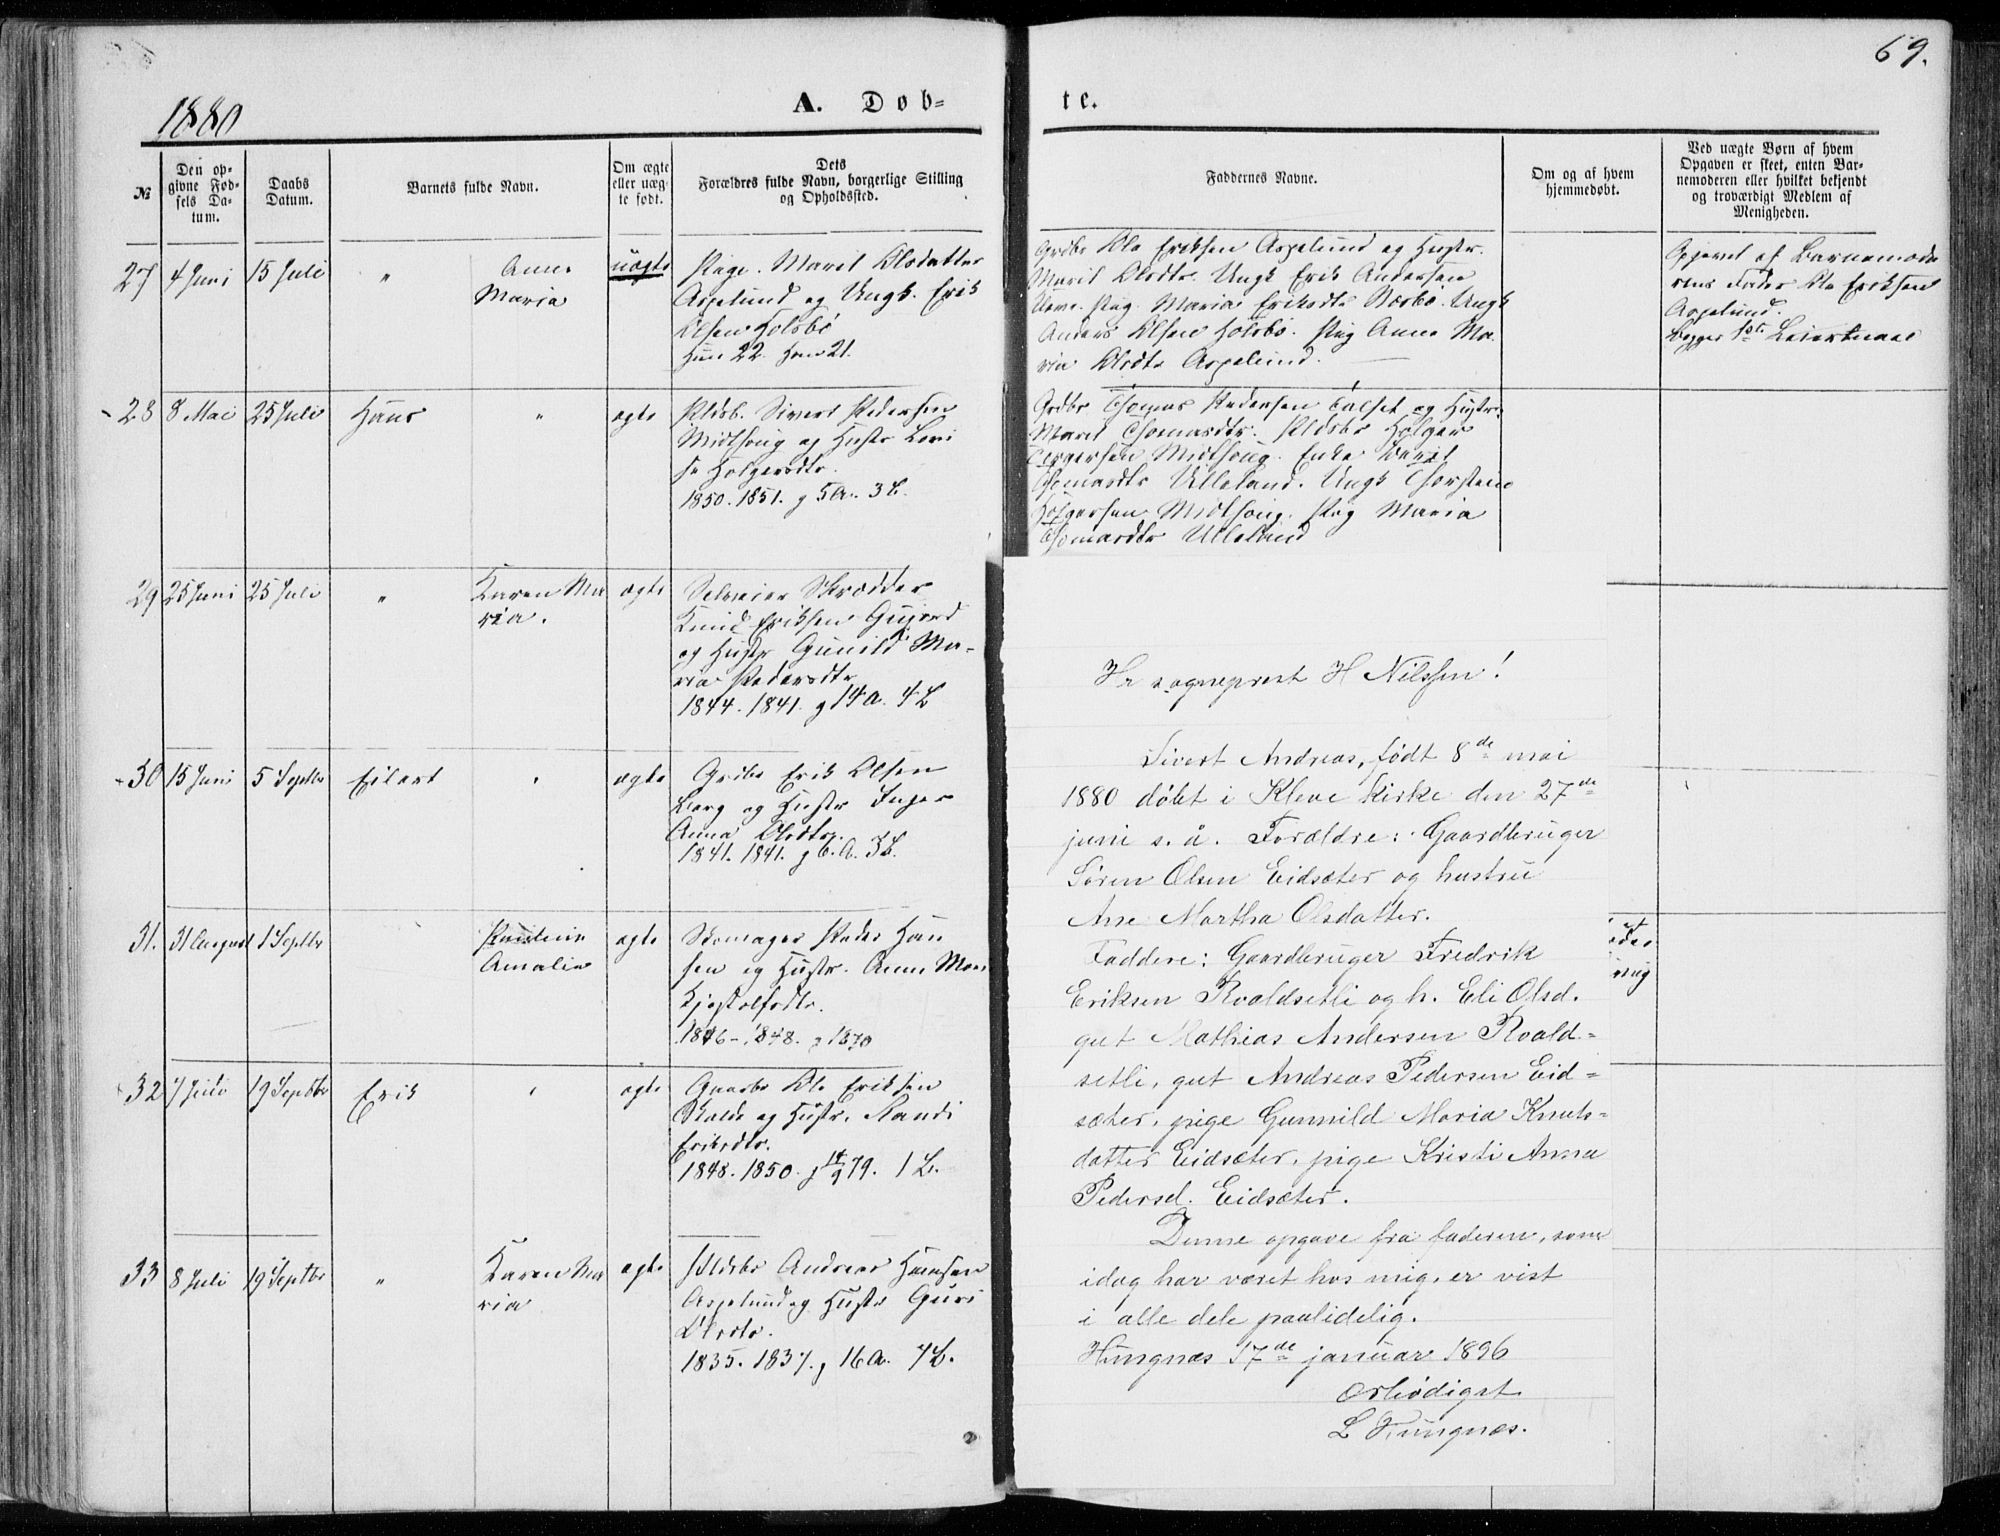 1880
A. Døb-
te.
69.
№
Den op-
givne Fød-
sels Da-
tum.
Daabs
Datum.
Barnets fulde Navn.
Om ægte
eller uæg-
te født.
Dets
Forældres fulde Navn, borgerlige Stilling
og Opholdssted.
Faddernes Navne.
Om og af hvem
hjemmedøbt.
Ved uægte Børn af hvem
Opgaven er skeet, enten Bar-
nemoderen eller hvilket bekjendt
og troværdigt Medlem af
Menigheden.
27 4 Juni 15 Juli " Anne
Maria
uægte
Pige. Marit Olsdatter
Aspelund og Ungk. Erik
Olsen Holsbø
Hun 22. Han 21.
Grdbr Ole Eriksen Aspelund og Hustr.
Marit Olsdtr. Ungk Erik Andersen
Pig. Maria Eriksdtr. Ungk
Anders Olsen Holsbø. Pig Anne Ma-
ria Olsdtr Aspelund.
Opgivet af Barnemode
rens Fader Ole Eriksen
Aspelund.
Begges 1ste Leiermaal
28 8 Mai 25 Juli Hans " ægte
Pldsb. Sivert Pedersen
Midthoug og Hustr Lovi
se Holgersdtr.
1850. 1851. g 5A. 3L.
Grdbr Thomas Pedersen Talset og Hustr.
Marit Thomasdtr. Pldsbr Holger
Midthoug. Enke Marit
Thomasdtr Ulleland. Ungk Thorstein
Holgersen Midthoug. Pig Maria
Thomasdtr Ulleland
29 25 Juni 25 Juli " Karen Ma
ria.
ægte
Selveier Skrædder
Knud Eriksen
og Hustr Gunild Ma-
ria Pedersdtr
1844. 1841. g 14 A. 4 L
30 15 Juni 5 Septbr Eilert " ægte
Grdbr Erik Olsen
Berg og Hustr Inger
Anna Olsdtr.
1841. 1841. g 6. A. 3L.
31. 31 August 1 Septbr Pauline
Amalie
ægte
Skomager Peder Han
sen og Hustr. Anne Mari
Kjøstolfsdtr.
1846 - 1848. g 1870
32 7 Juli 19 Septbr Erik " ægte
Gaardbr Ole Eriksen
og Hustr. Randi
Eriksdtr.
1848. 1850. g 14/9 79. 1 L.
33 8 Juli 19 Septbr " Karen Ma
ria
ægte
Pldsbr Andreas Hansen
Aspelund og Hustr Guri
Olsdtr.
1835. 1837. g 16 A. 7L.
Hr sogneprest H Nilssen!
Sivert Andreas, født 8de mai
1880 døbt i Kleve kirke den 27de
juni s. å. Forældre: Gaardbruger
Søren Olsen Eidsæter og hustru
Ane Martha Olsdatter.
Faddere: Gaardbruger Fredrik
Eriksen Roaldsetli og h. Eli Olsd.
gut Mathias Andersen Roald-
setli, gut Andreas Pedersen Eid-
sæter, pige Gunnild Maria Knuts-
datter Eidsæter, pige Kristi Anna
Pedersd. Eidsæter.
Denne opgave fra faderen, som
idag har været hos mig, er vist
i alle dele paalidelig.
Hungnæs 17de januar 1896
Ærbødigst
L Hungnæs.